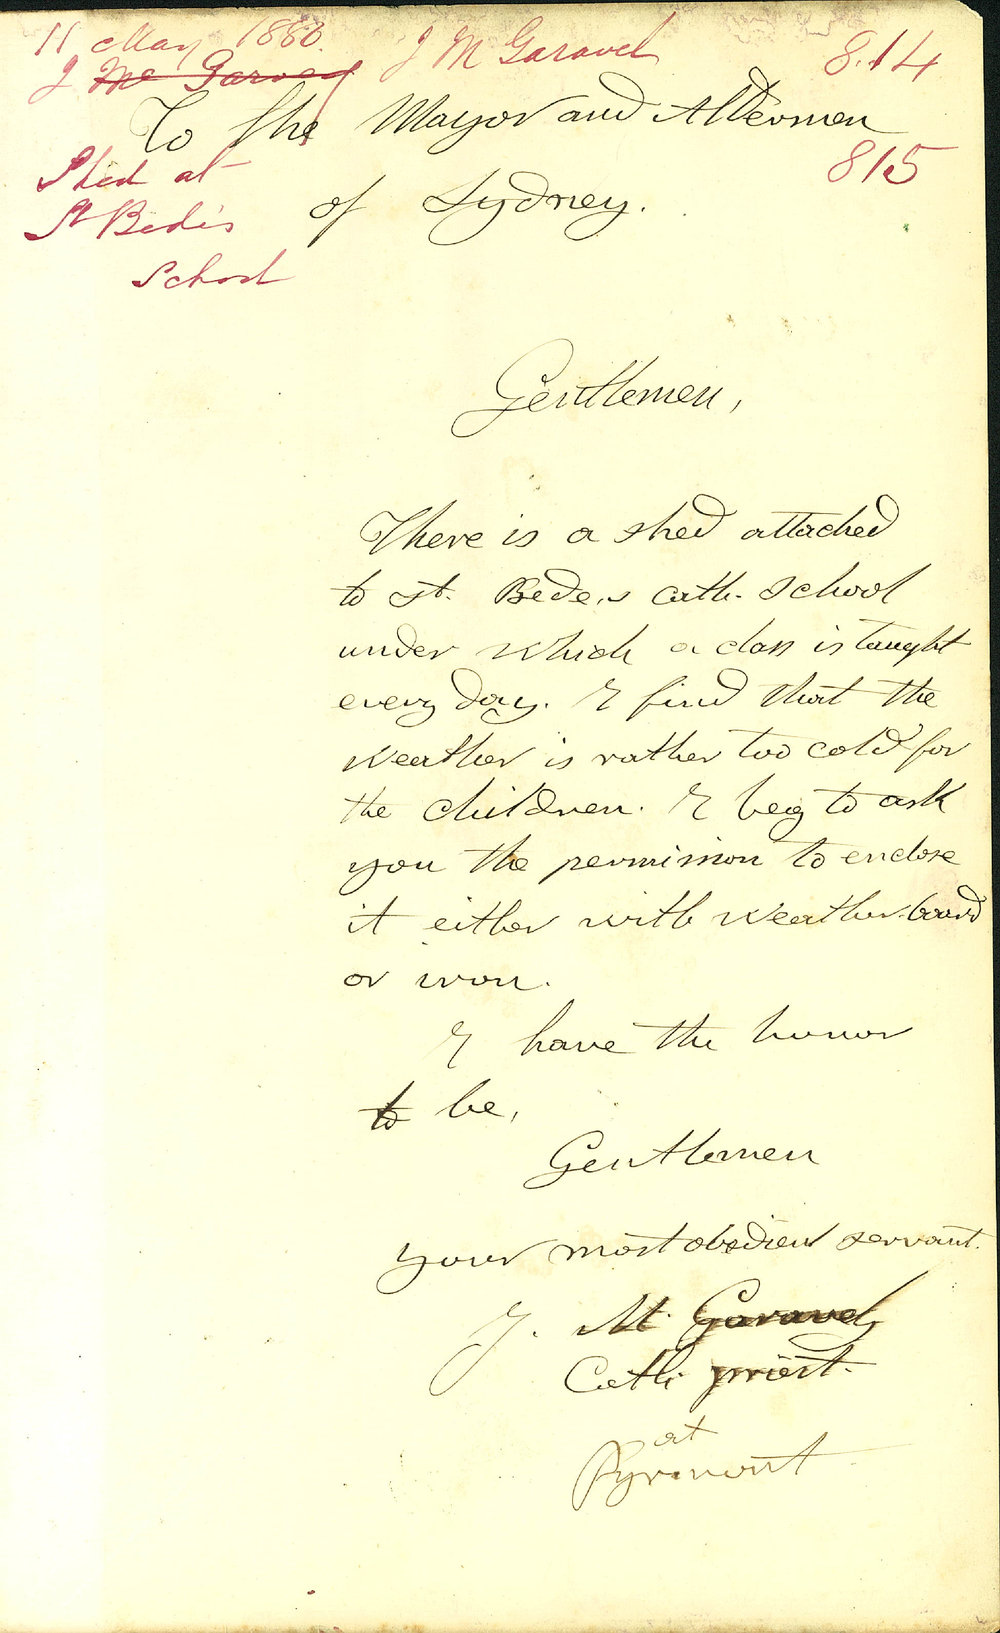 11 May 1880. J M Garavel 8.14
J Mc Garvey
To the Mayor and Aldermen
815
Shed at
of Sydney.
St Bede's
School
Gentlemen,
There is a shed attached
to St. Bede,s Cath. School
under which a class is taught
every day. I find that the
weather is rather too cold for
the children. I beg to ask
you the permission to enclose
it either with weather-board
or iron.
I have the honor
to be,
Gentlemen
your most obedient servant.
J. M. Garavel,
Cath. priest.
at
Pyrmont